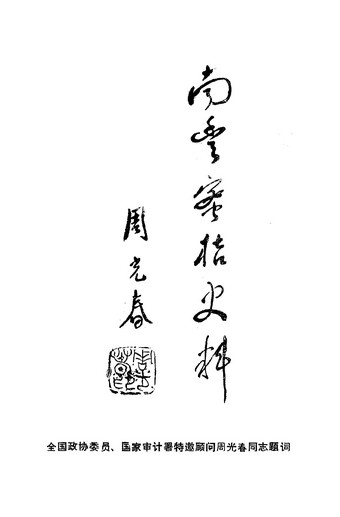 南丰蜜桔史料
周光春
全国政协委员、国家审计署特邀顾问周光春同志题词